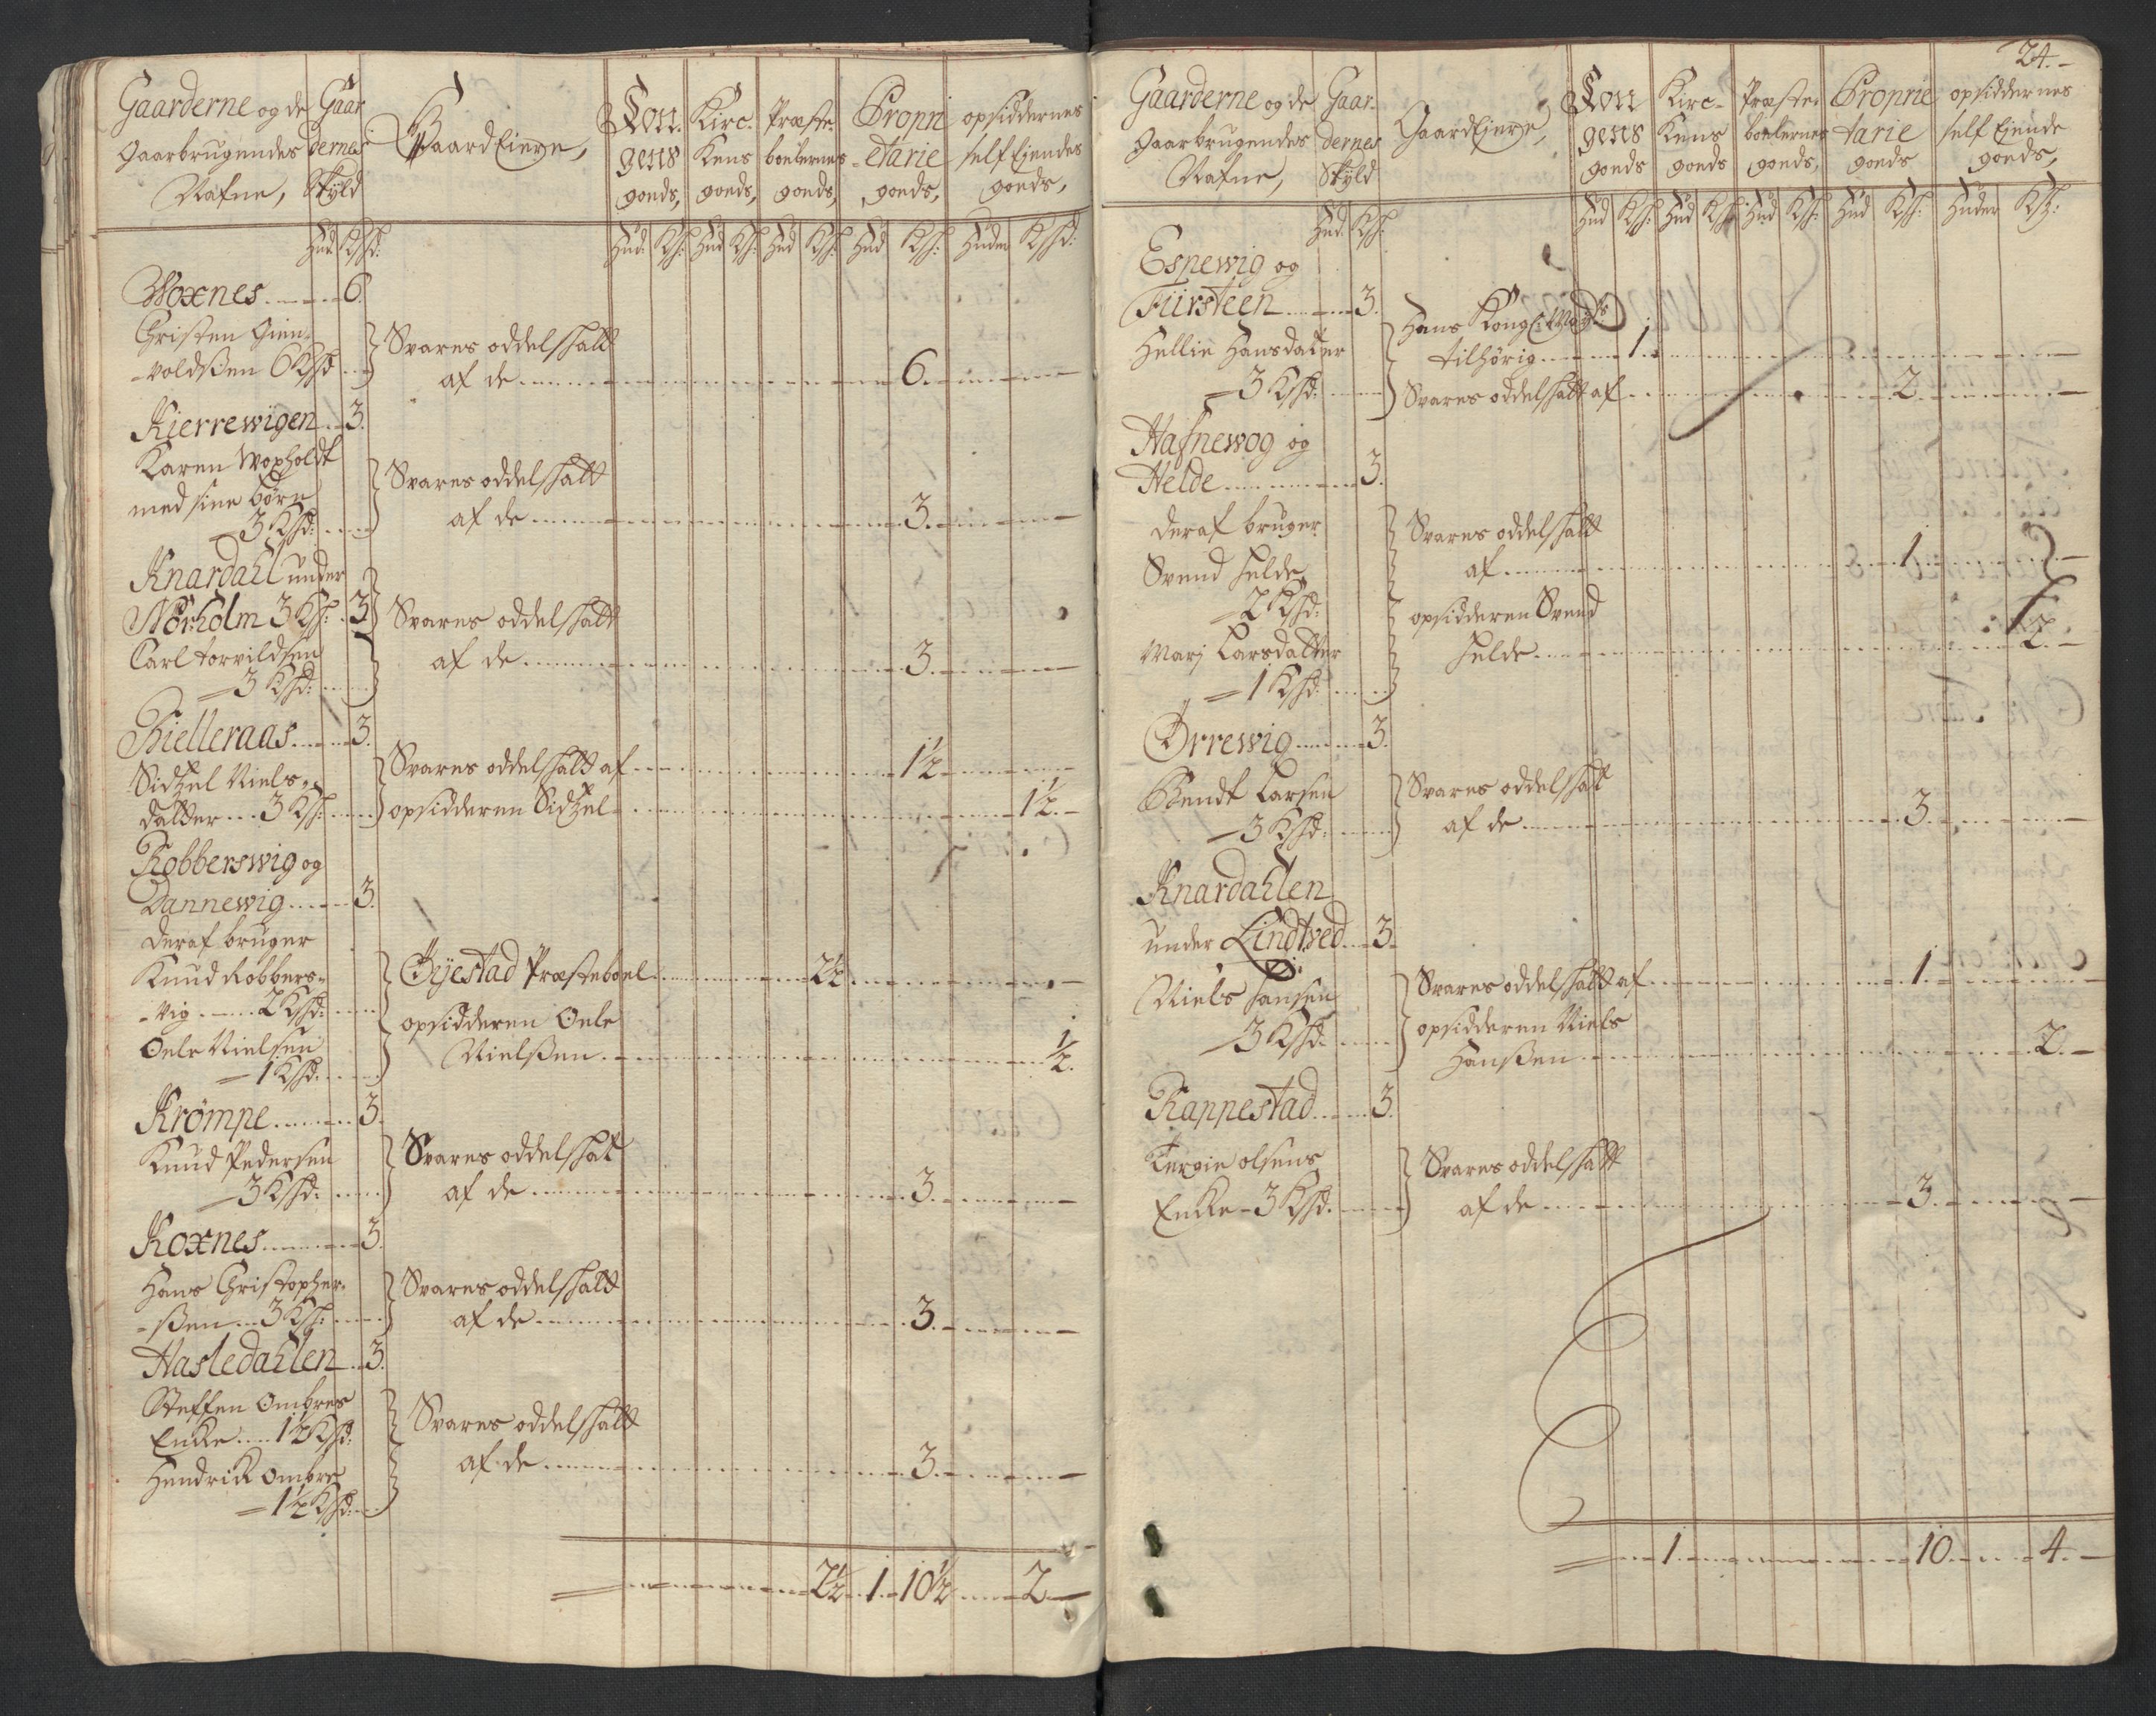 Gaarderne og de
Gaarbrugendes
Nafne,
Gaar
dernes
Skyld
GaardEierne,
Kon-
gens
goeds,
Kirc-
kens
goeds,
Præste-
boelernes
goeds,
Propri
etarie
goeds,
opsiddernes
self Eiendes
goeds,
Hud Ksh: Hud: Ksh: Hud Ksh: Hud Ksh: Hud Ksh: Huder Kshd:
Woxnes 6.
Christen Gien-
voldßen 6 Kshd
Svares oddelshatt
af de 6.
Kierrewigen 3.
Karen Woxholdt
med sine børn
3 Kshd:
Svares oddelshatt
af de 3.
Knardahl under
Nörholm 3 Ksh: 3
Carl torvildsen
3 Kshd:
Svares oddelshatt
af de 3.
Bielleraas 3.
Sidzel Niels-
datter 3 Ksh:
Svares oddelshatt af 1½
opsidderen Sidzel 1½.
Robberswig og
Dannewig 3.
deraf bruger
Knud Robbers-
vig 2 Kshd:
Oele Nielsen
1 Kshd:
Öyestad Præsteboel 2½.
opsidderen Oele
Nielßen ½.
Krømpe 3.
Knud Pedersen
3 Kshd:
Svares oddelshat
af de 3.
Roxnes 3.
Hans Christopher-
ßen 3 Ksh:
Svares oddelshatt
af de 3.
Hasledahlen 3.
Steffen Ombres
Encke 1½ Kshd:
Hendrick Ombre
1½ Kshd:
Svares oddelshatt
af de 3.
2½ 1 10½ 2
24.
Gaarderne og de
Gaarbrugendes
Nafne,
Gaar-
dernes
Skyld
GaardEierne,
Kon
gens
goeds
Kirc-
kens
goeds
Præste-
boelernes
goeds,
Proprie
tarie
goeds
opsiddernes
self Eiende
goeds,
Hud: Ksh: Hud Ksh: Hud Ksh: Hud Ksh: Hud Ksh: Huder Ksh:
Espewig og
Fürsteen 3.
Hellie Hansdatter
3 Kshd:
Hans Kongl: Mayts
tilhørig 1.
Svares oddelshatt af 2.
Hafnewog og
Helde 3.
deraf bruger
Svend Helde
2 Kshd:
Marj Larsdatter
1 Kshd:
Svares oddelshatt
af 1.
opsidderen Svend
Helde 2.
Örrewig 3.
Bendt Larsen
3 Kshd:
Svares oddelshat
af de 3.
Knardahlen
under Lindtved 3.
Niels Hansen
3 Kshd:
Svares oddelshatt af 1.
opsidderen Niels
Hanßen 2.
Rappestad 3.
Tergie olsens
Encke 3 Kshd.
Svares oddelshatt
af de 3.
1. 10. 4.